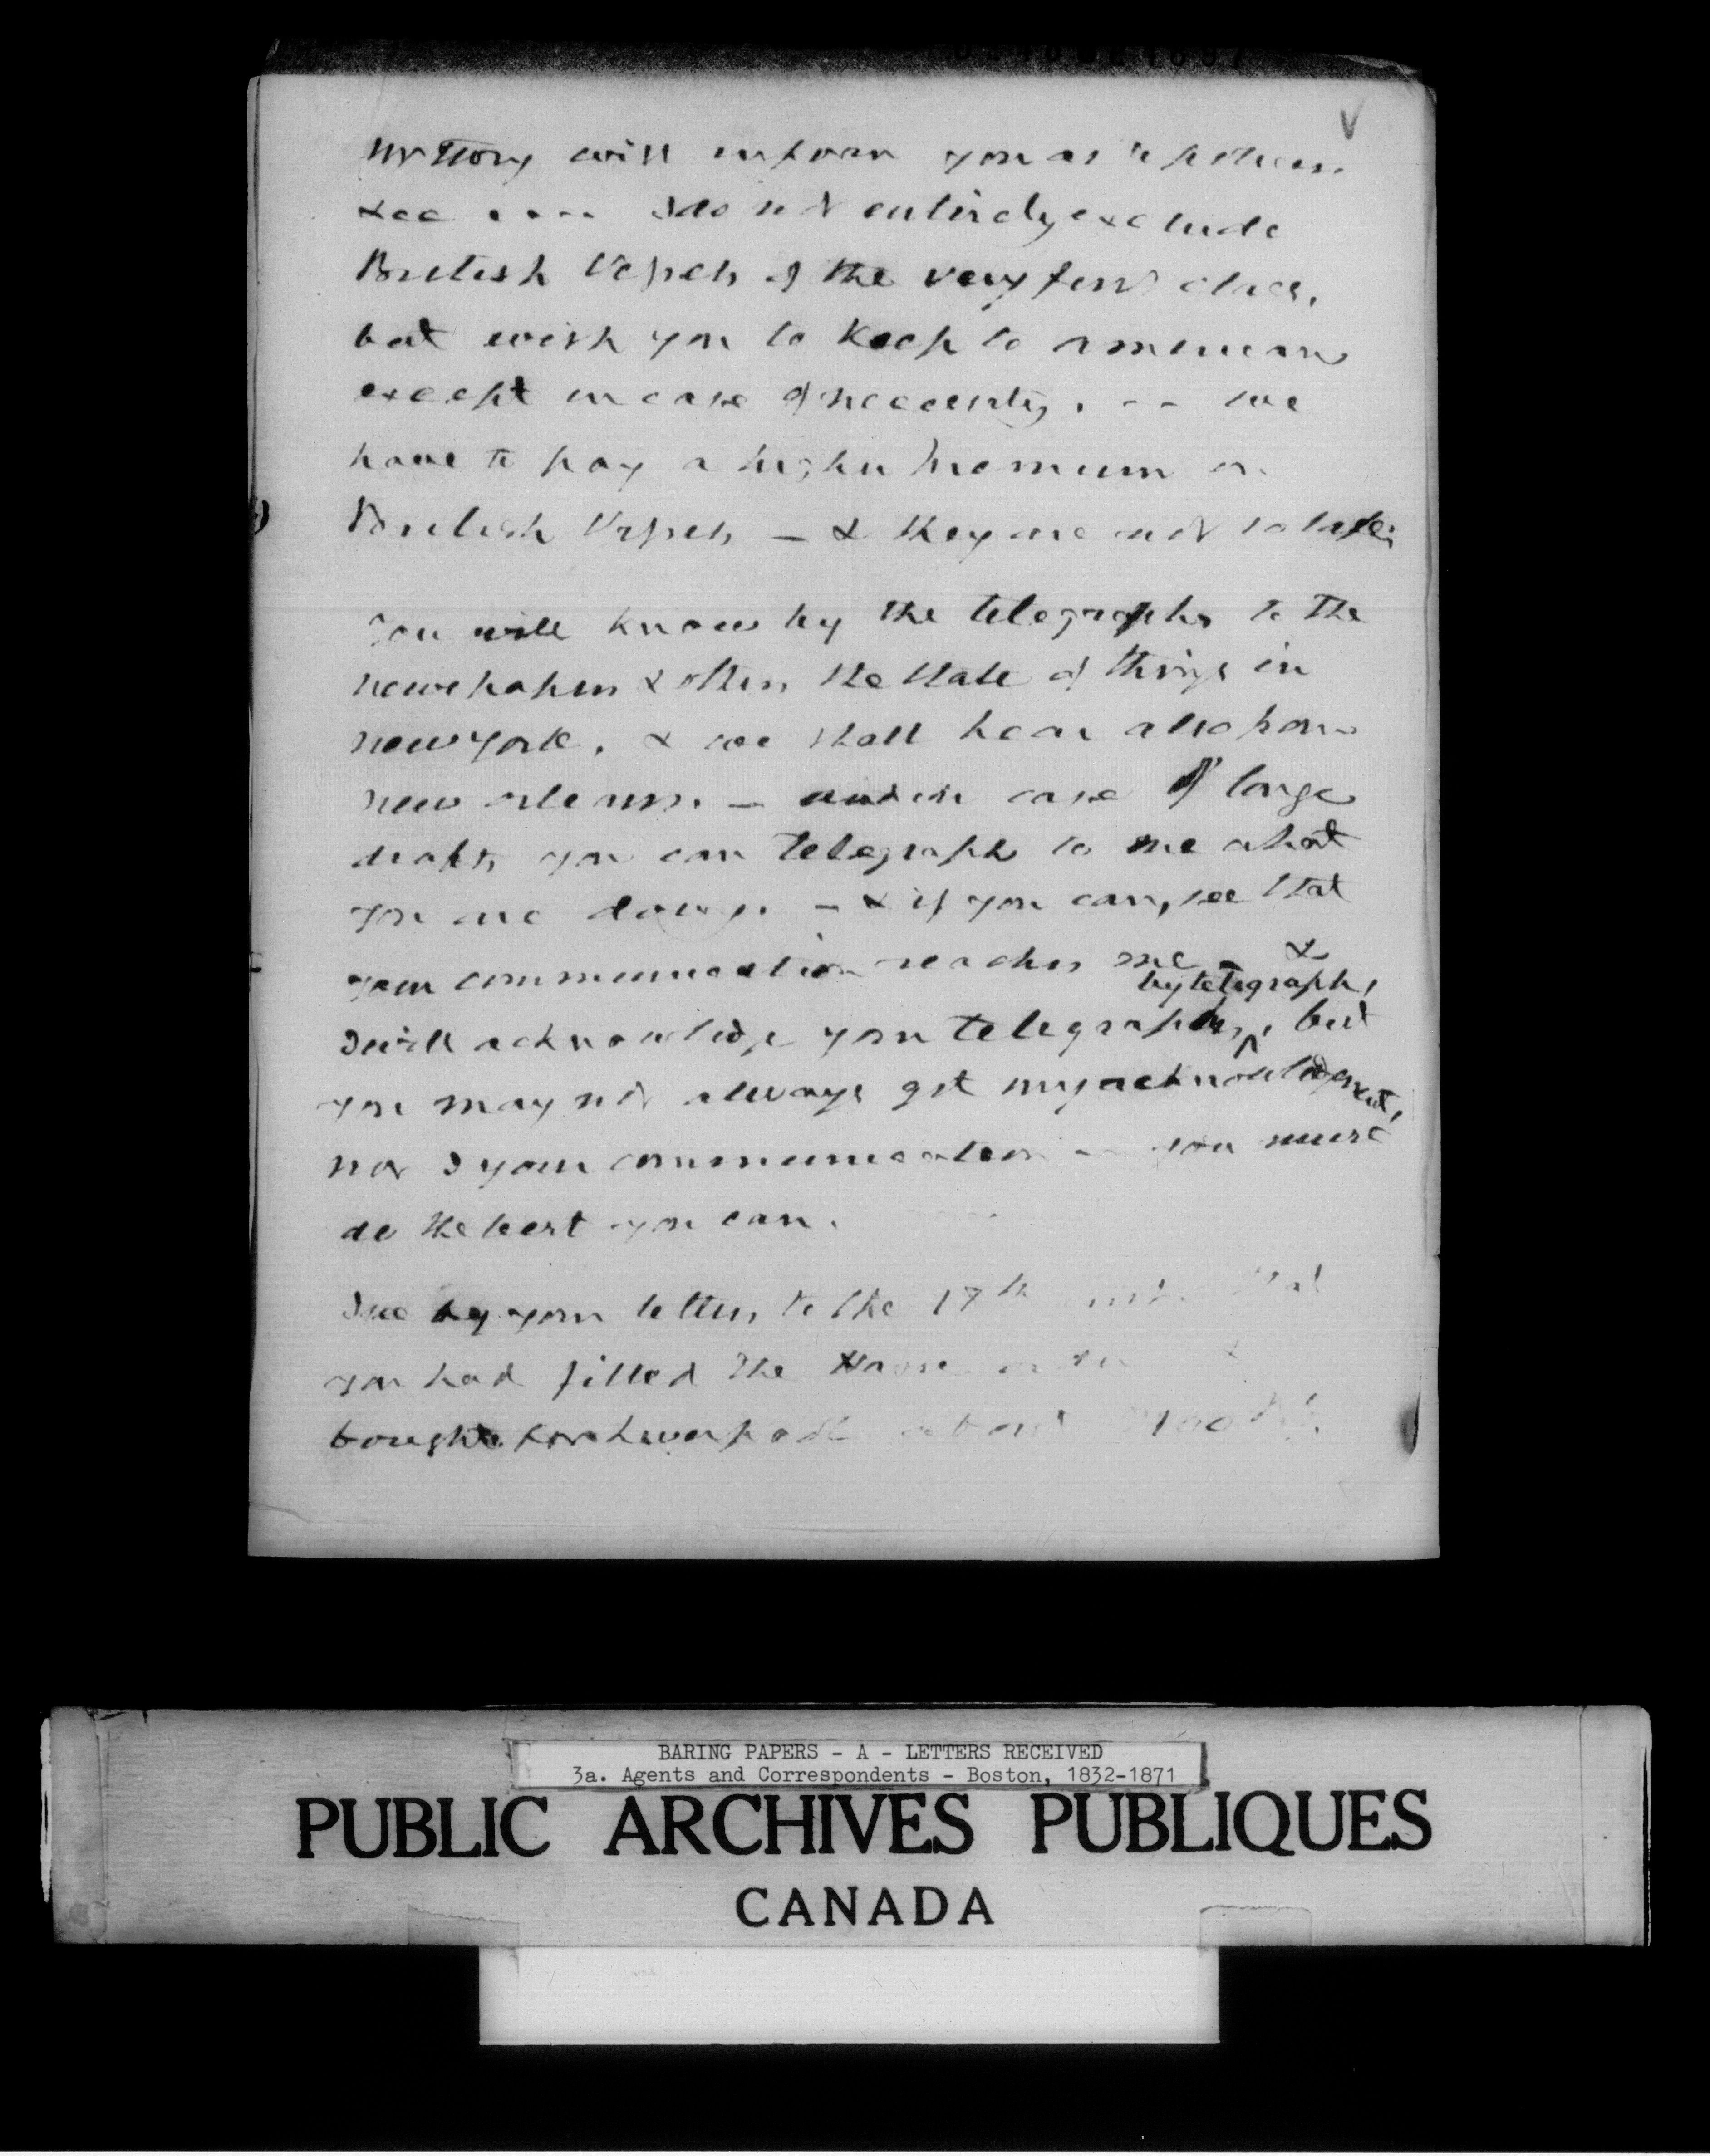 will inform you as to
&cc .... I do not entirely exclude
British Vessels of the very first class,
but wish you to keep to American
except in case of necessity. -- we
have to pay a higher premium on
British Vessels - & they are not so safe.
You will know by the telegraphs to the
newspapers & others, the state of things in
new york, & we shall hear also from
new orleans. - and in case of large
drafts you can telegraph to me what
you are doing. - & if you can, see that
your communication reaches me - &
by telegraph,
I will acknowledge your telegraphs, but
you may not always get my acknowledgment,
nor I your communication -- you must
do the best you can.
I see by your letters to the 17th inst. that
you had filled the order &
bought for Liverpool about
BARING PAPERS - A - LETTERS RECEIVED
3a. Agents and Correspondents - Boston, 1832-1871
PUBLIC ARCHIVES PUBLIQUES
CANADA